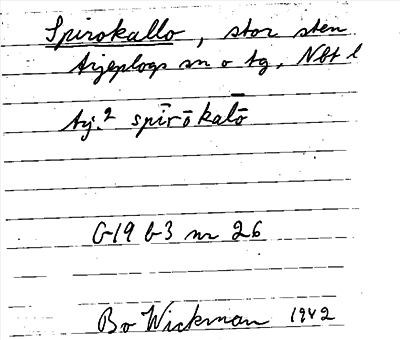 Spirokallo, stor sten
Arjeplogs sn o tg, Nbt l
Aj.² spīrōkalō̄
G-19 b-3 nr 26
Bo Wickman 1942